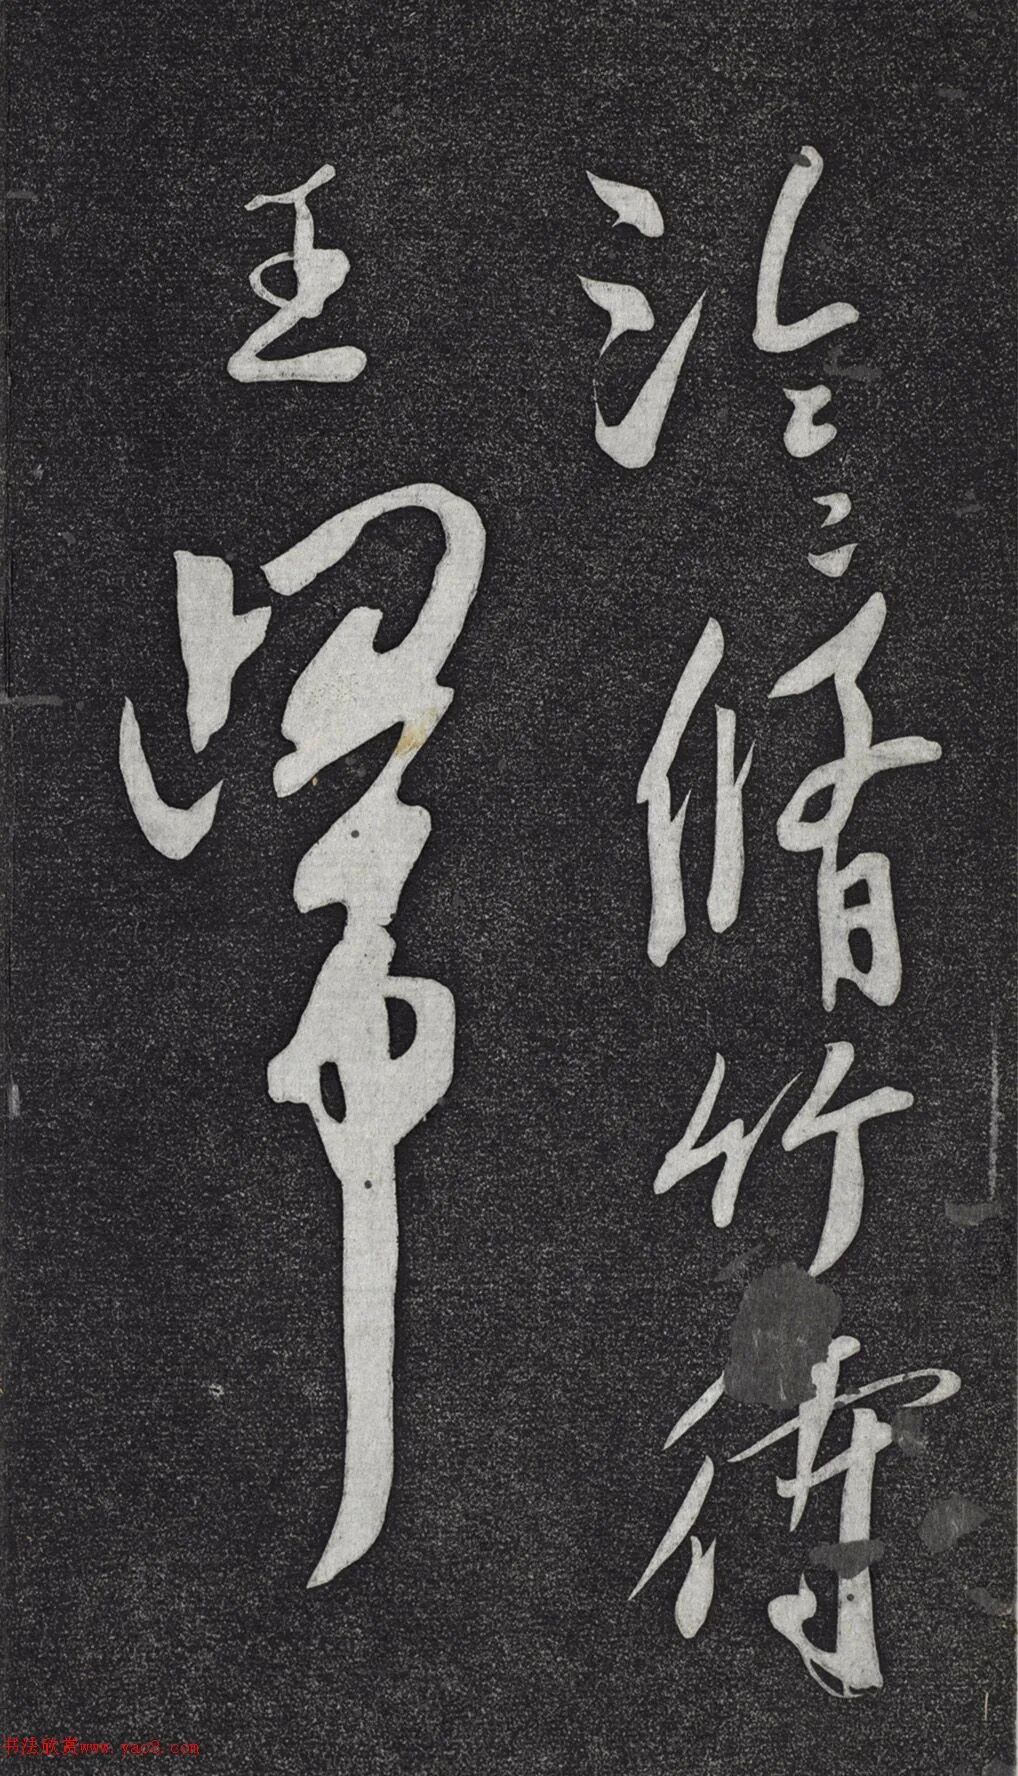 泠〻脩竹待
王歸
书法欣赏www.yac8.com